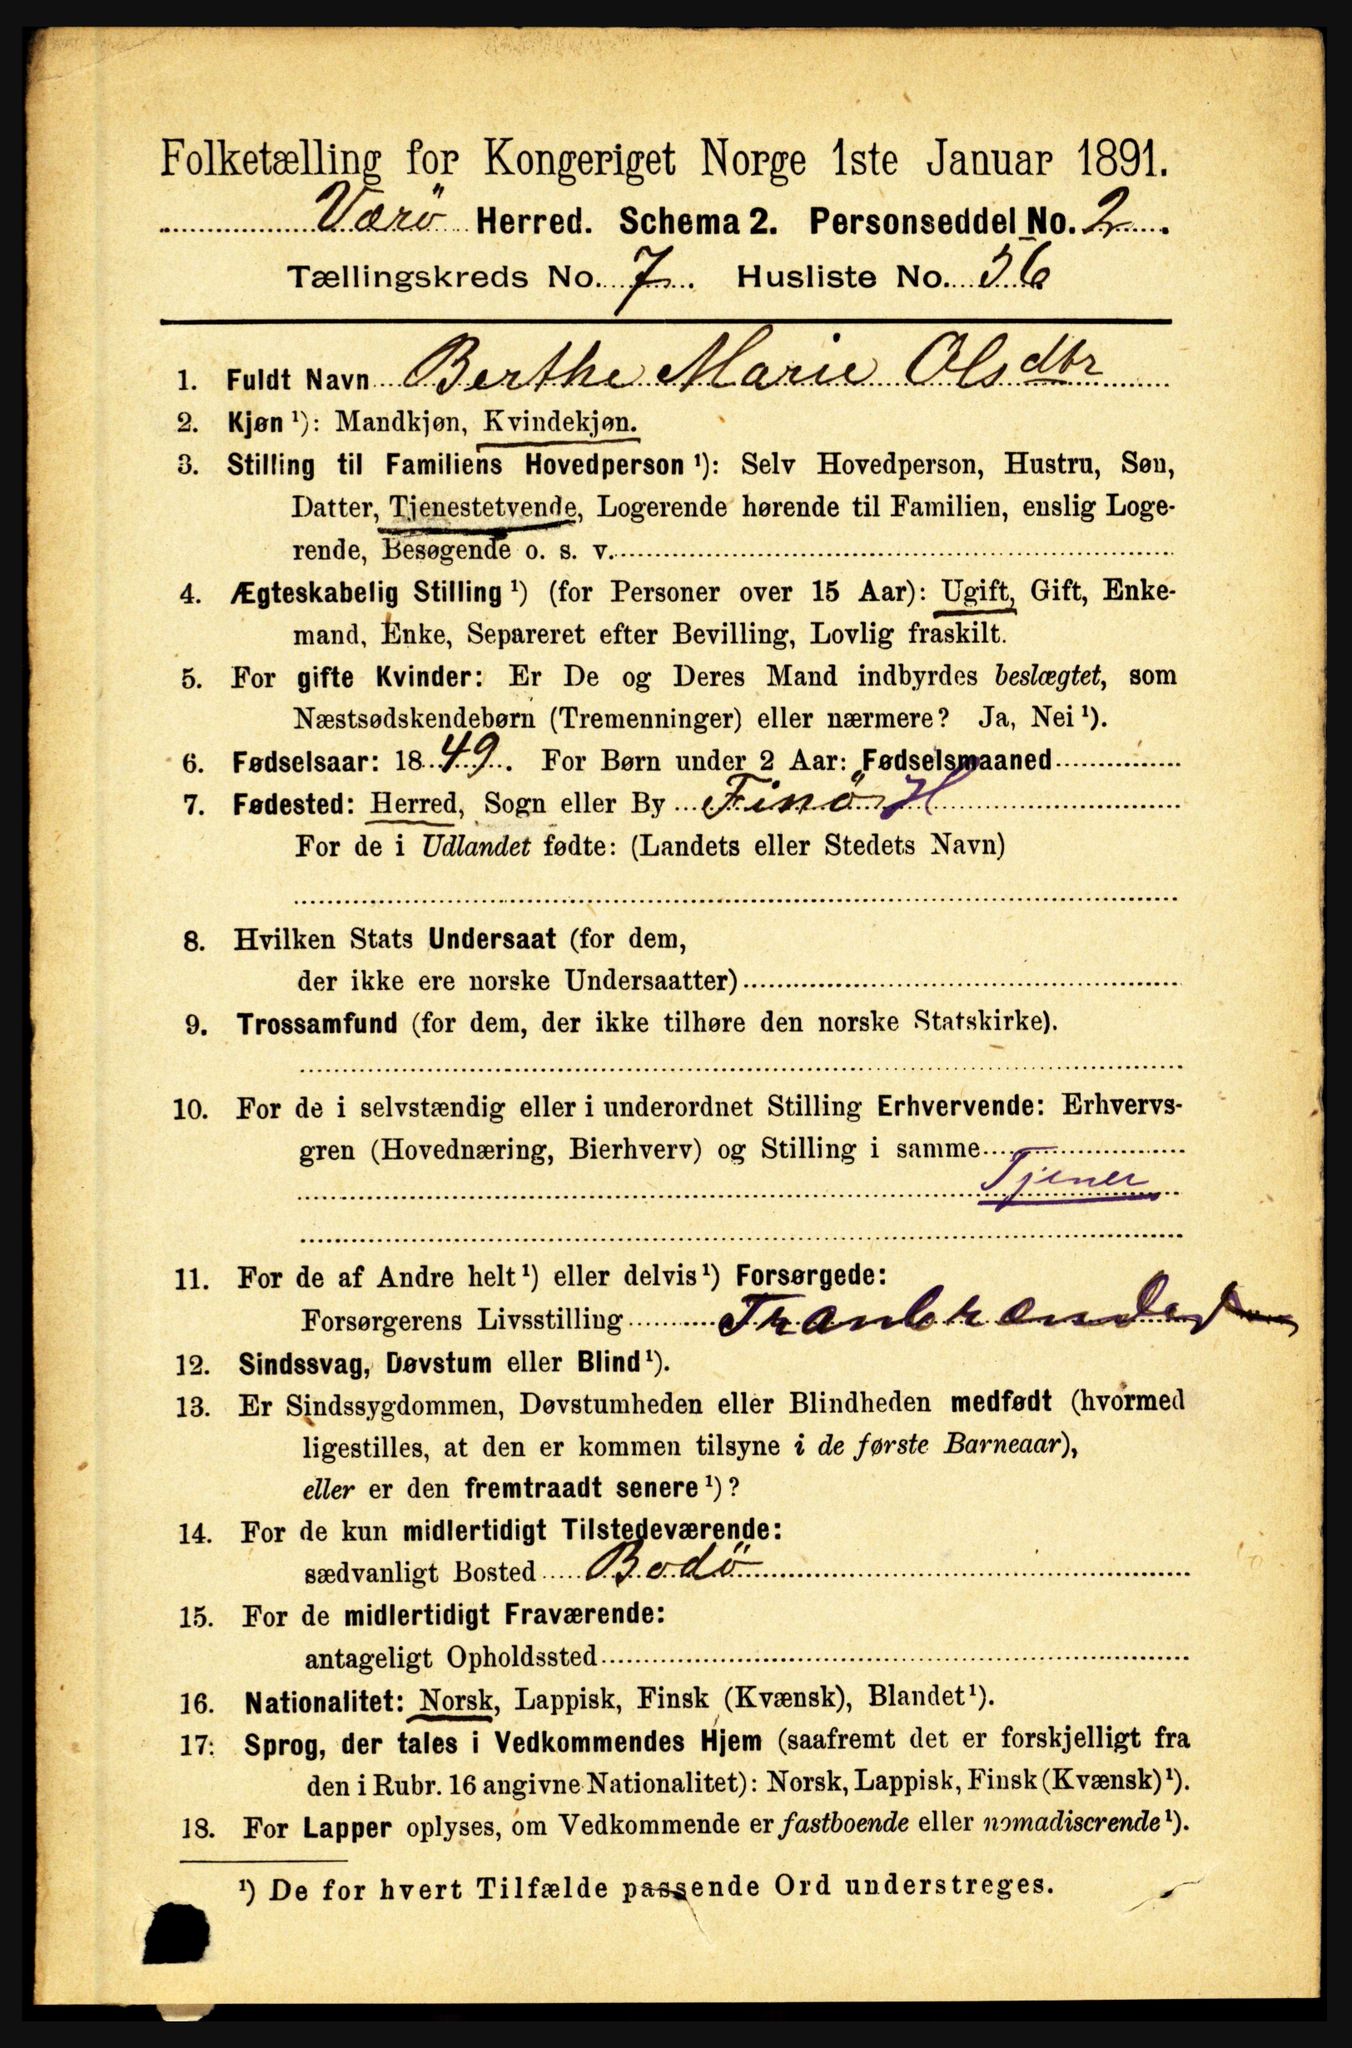 Folketælling for Kongeriget Norge 1ste Januar 1891.
Værö Herred. Schema 2. Personseddel No. 2
Tællingskreds No. 7 Husliste No. 56
1. Fuldt Navn Berthe Marie Olsdtr
2. Kjøn ¹): Mandkjøn, Kvindekjøn.
3. Stilling til Familiens Hovedperson ¹): Selv Hovedperson, Hustru, Søn,
Datter, Tjenestetyende, Logerende hørende til Familien, enslig Loge-
rende, Besøgende o. s. v.
4. Ægteskabelig Stilling ¹) (for Personer over 15 Aar): Ugift, Gift, Enke-
mand, Enke, Separeret efter Bevilling, Lovlig fraskilt.
5. For gifte Kvinder: Er De og Deres Mand indbyrdes beslægtet, som
Næstsødskendebørn (Tremenninger) eller nærmere? Ja, Nei ¹).
6. Fødselsaar: 1849. For Børn under 2 Aar: Fødselsmaaned
7. Fødested: Herred, Sogn eller By Finö H
For de i Udlandet fødte: (Landets eller Stedets Navn)
8. Hvilken Stats Undersaat (for dem,
der ikke ere norske Undersaatter)
9. Trossamfund (for dem, der ikke tilhøre den norske Statskirke).
10. For de i selvstændig eller i underordnet Stilling Erhvervende: Erhvervs-
gren (Hovednæring, Bierhverv) og Stilling i samme
Tjener
11. For de af Andre helt ¹) eller delvis ¹) Forsørgede:
Forsørgerens Livsstilling Tranbrænder
12. Sindssvag, Døvstum eller Blind ¹).
13. Er Sindssygdommen, Døvstumheden eller Blindheden medfødt (hvormed
ligestilles, at den er kommen tilsyne i de første Barneaar),
eller er den fremtraadt senere ¹)?
14. For de kun midlertidigt Tilstedeværende:
sædvanligt Bosted Bodö
15. For de midlertidigt Fraværende:
antageligt Opholdssted
16. Nationalitet: Norsk, Lappisk, Finsk (Kvænsk), Blandet ¹).
17. Sprog, der tales i Vedkommendes Hjem (saafremt det er forskjelligt fra
den i Rubr. 16 angivne Nationalitet): Norsk, Lappisk, Finsk (Kvænsk) ¹).
18. For Lapper oplyses, om Vedkommende er fastboende eller nomadiserende ¹).
¹) De for hvert Tilfælde passende Ord understreges.